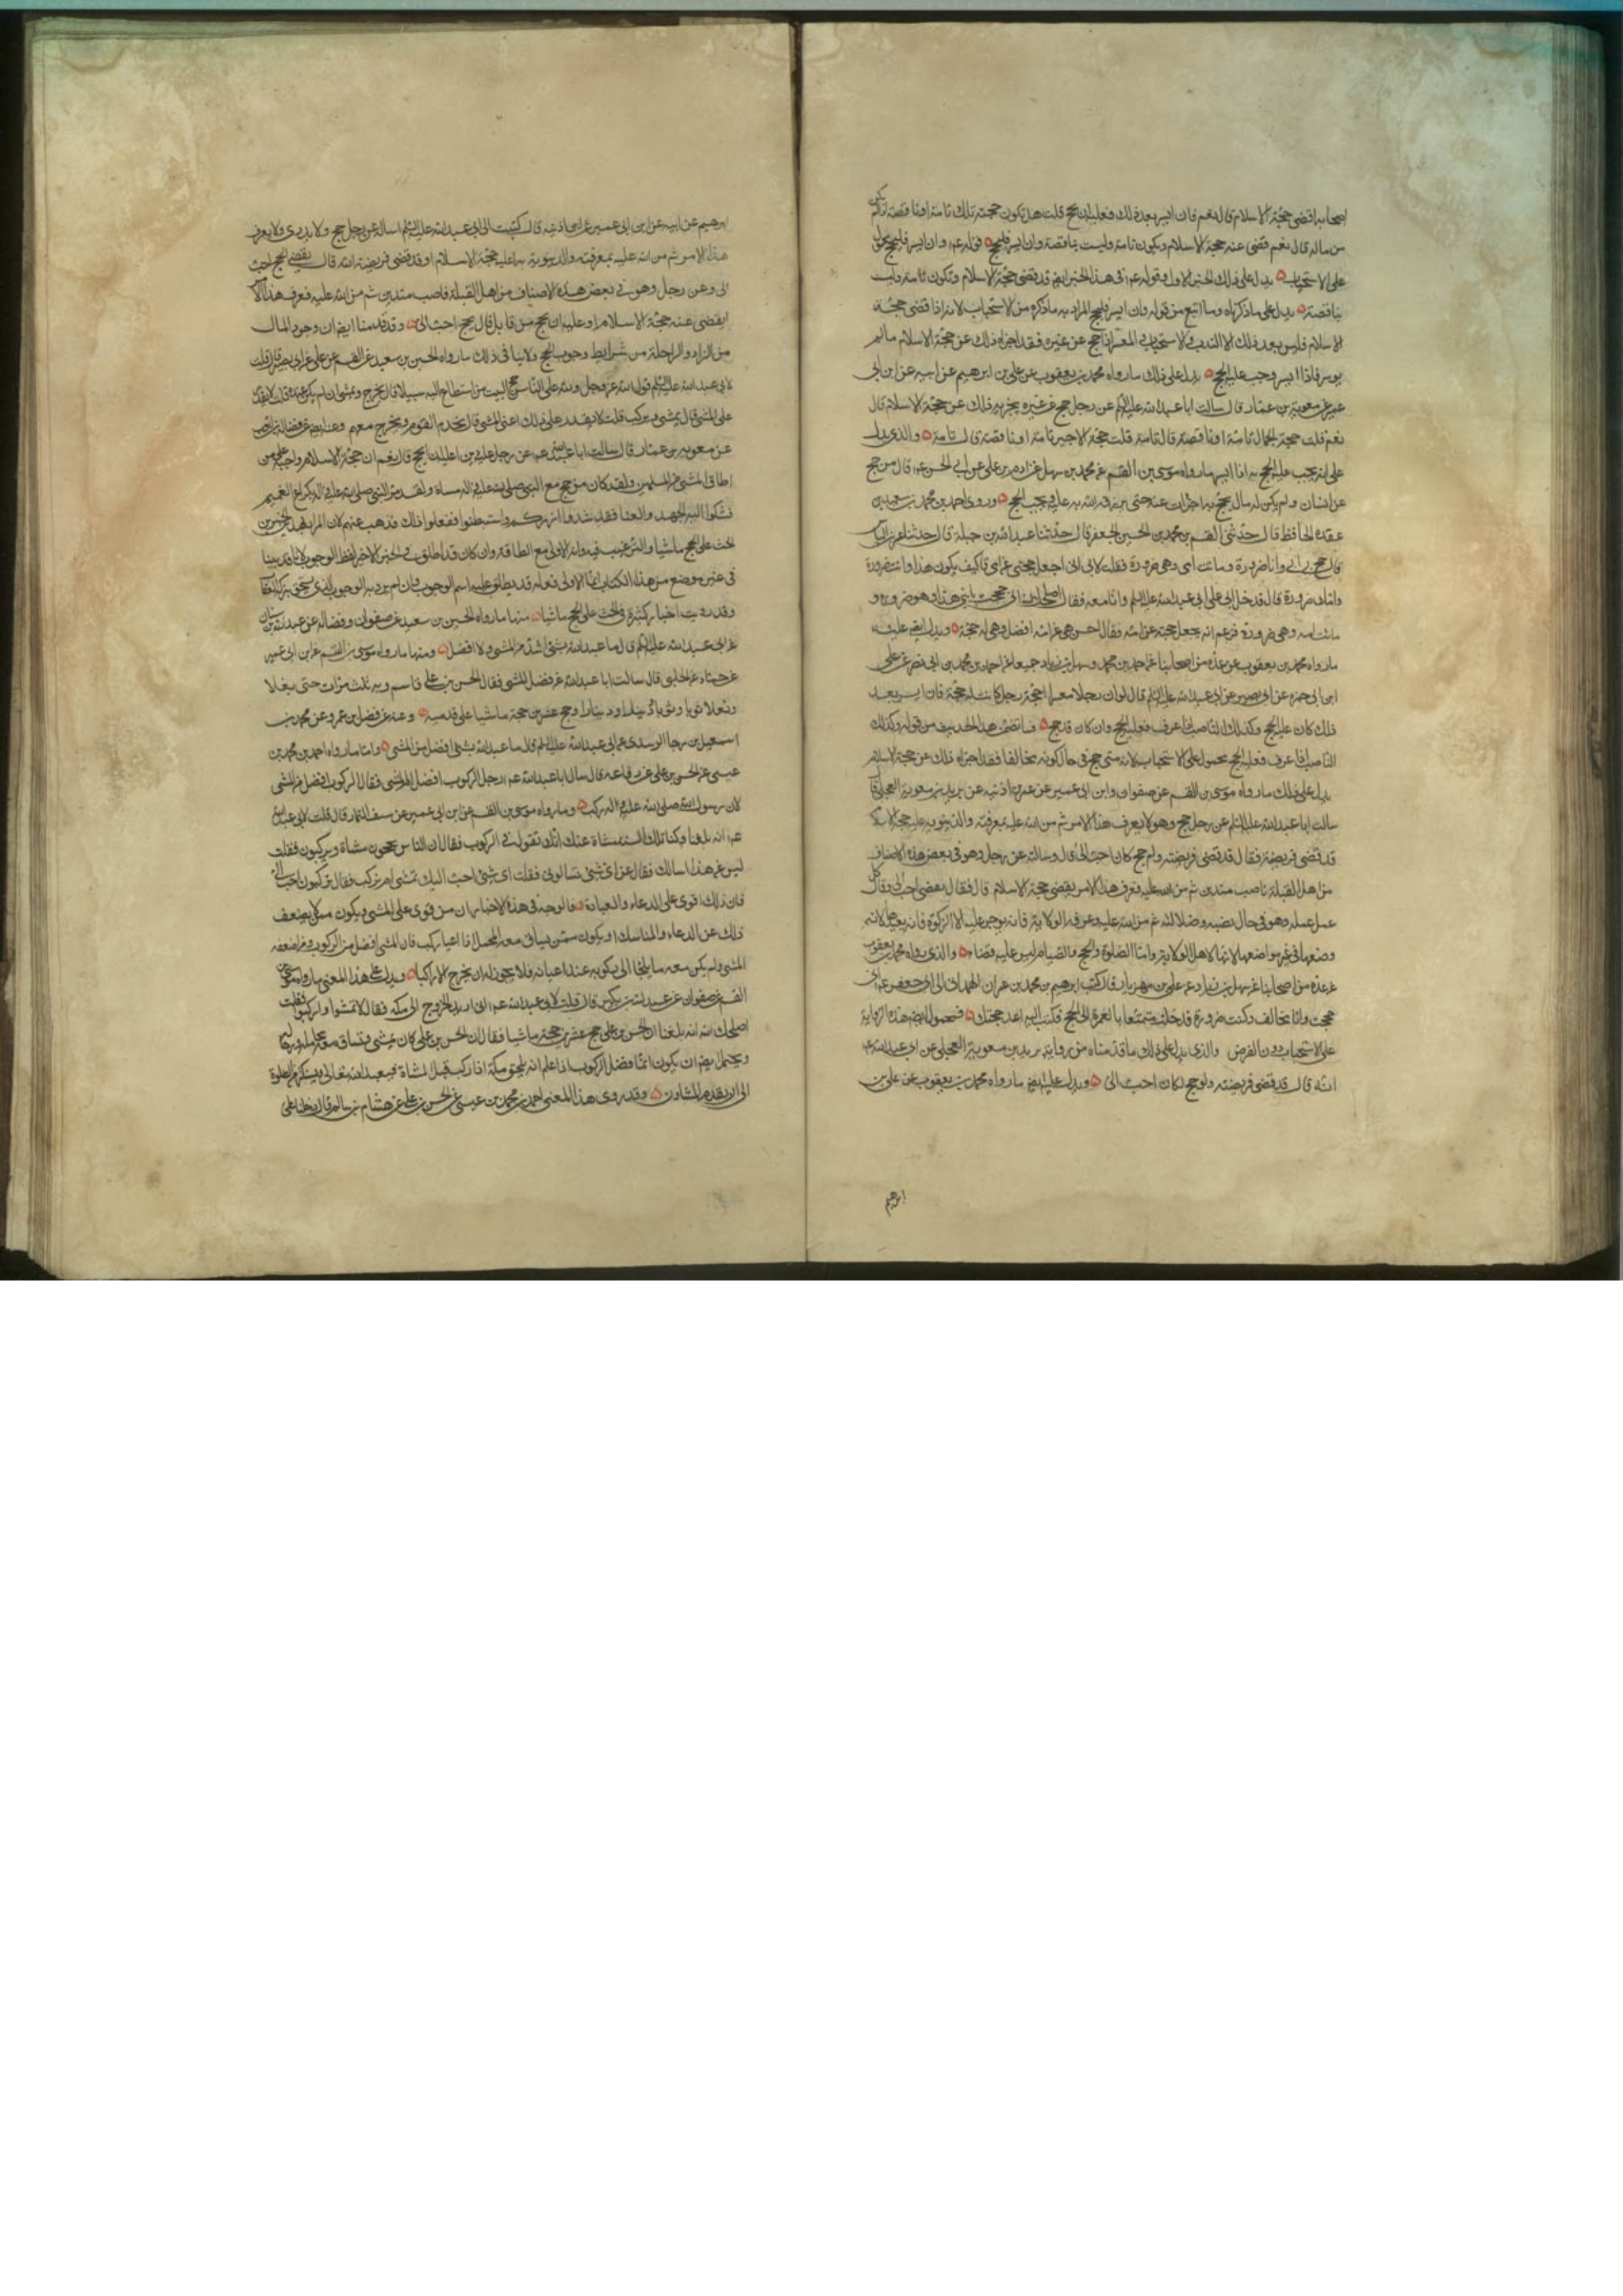 اصحابه اقضى حجة الاسلام قال نعم فان ايسر بعد ذلك فعليه ان يحج قلت هل تكون حجته تلك تامة او ناقصة اذا لم يكن حج
من ماله قال نعم قضى عنه حجة الاسلام ويكون تامة وليست بناقصة وان ايسر فليحج قوله عم وان ايسر فليحج محمول
على الاستحباب يدل على ذلك الخبر الاول وقوله عم في هذا الخبر ايضا قد قضى حجة الاسلام وتكون تامة وليست
بناقصة يدل على ما ذكرناه وما اتبع من قوله وان ايسر فليحج المراد به ما ذكره من الاستحباب لانه اذا قضى حجة
الاسلام فليس بعد ذلك الا الندب والاستحباب المعسر اذا حج عن غيره فقد اجزاه ذلك عن حجة الاسلام ما لم
يوسر فاذا ايسر وجب عليه الحج يدل على ذلك ما رواه محمد بن يعقوب عن علي بن ابرهيم عن ابيه عن ابن ابي
عمير عن معوية بن عمار قال سالت ابا عبد الله عليه السلم عن رجل حج عن غيره يجزيه ذلك عن حجة الاسلام قال
نعم قلت حجة الجمال تامة او ناقصة قال تامة قلت حجة الاجير تامة او ناقصة قال تامة والذي يدل
على انه يجب عليه الحج اذا ايسر ما رواه موسى بن القسم عن محمد بن سهل عن ادم بن علي عن ابي الحسن عم قال من حج
عن انسان ولم يكن له مال يحج به اجزات عنه حتى يرزقه الله به عليه ويجب الحج وروى احمد بن محمد بن سعيد بن
عقدة الحافظ قال حدثني القسم بن محمد بن الحسين الجعفي قال حدثنا عبد الله بن جبلة قال حدثنا عمرو بن الياس
قال حج بي ابي وانا صرورة وماتت امي وهي صرورة فقلت لابي اني اجعل حجتي عن امي قال كيف يكون هذا وانت صرورة
وامك صرورة قال فدخل ابي على ابي عبد الله عليه السلم وانا معه فقال اصلحك الله اني حججت بابني هذا وهو صرورة و
ماتت امه وهي صرورة فزعم انه يجعل حجته عن امه فقال احسن هي عن امه افضل وهي له حجة ويدل ايضا عليه
ما رواه محمد بن يعقوب عن عدة من اصحابنا عن احمد بن محمد وسهل بن زياد جميعا عن احمد بن محمد بن ابي نصر عن علي
ابن ابي حمزة عن ابي بصير عن ابي عبد الله عليه السلم قال لو ان رجلا معسرا احجه رجل كانت له حجة فان ايسر بعد
ذلك كان عليه الحج وكذلك الناصب اذا عرف فعليه الحج وان كان قد حج فما تضمن هذا الحديث من قوله وكذلك
الناصب اذا عرف فعليه الحج محمول على الاستحباب لانه متى حج في حال كونه مخالفا فقد اجزاه ذلك عن حجة الاسلام
يدل على ذلك ما رواه موسى بن القسم عن صفوان وابن ابي عمير عن عمر بن اذينه عن بريد بن معوية العجلي قال
سالت ابا عبد الله عليه السلم عن رجل حج وهو لا يعرف هذا الامر ثم من الله عليه بمعرفته والدينونة به عليه حجة الاسلام او
قد قضى فريضته فقال قد قضى فريضته ولو حج كان احب الي قال وسالته عن رجل وهو في بعض هذه الاصناف
من اهل القبلة ناصب متدين ثم من الله عليه فعرف هذا الامر يقضي حجة الاسلام قال فقال يقضي احب الي وقال كل
عمل عمله وهو في حال نصبه وضلالته ثم من الله عليه وعرفه الولاية فانه يوجر عليه الا الزكوة فانه يعيدها لانه
وضعها في غير مواضعها لانها لاهل الولاية واما الصلوة والحج والصيام فليس عليه قضاء والذي رواه محمد بن يعقوب
عن عدة من اصحابنا عن سهل بن زياد عن علي بن مهزيار قال كتب ابرهيم بن محمد بن عمران الهمداني الى ابي جعفر عم اني
حججت وانا مخالف وكنت صرورة فدخلت متمتعا بالعمرة الى الحج فكتب اليه اعد حجتك فمحمول ايضا هذه الرواية
على الاستحباب دون الفرض والذي يدل على ذلك ما قدمناه من رواية بريد بن معوية العجلي عن ابي عبد الله عم
انه قال قد قضى فريضته ولو حج لكان احب الي ويدل عليه ايضا ما رواه محمد بن يعقوب عن علي بن
ابرهيم
ابرهيم عن ابيه عن ابن ابي عمير عن ابن اذينه قال كتبت الى ابي عبد الله عليه السلم اساله عن رجل حج ولا يدري ولا يعرف
هذا الامر ثم من الله عليه بمعرفته والدينونة به اعليه حجة الاسلام او قد قضى فريضة الله قال يقضي الحج احب
الي وعن رجل وهو في بعض هذه الاصناف من اهل القبلة ناصب متدين ثم من الله عليه فعرف هذا الامر
ايقضي عنه حجة الاسلام او عليه ان يحج من قابل قال يحج احب الي وقد قدمنا ايضا ان وجود المال
من الزاد والراحلة من شرايط وجوب الحج ولا ينافي ذلك ما رواه الحسين بن سعيد عن القسم عن علي عن ابي بصير قال قلت
لابي عبد الله عليه السلم قول الله عز وجل ولله على الناس حج البيت من استطاع اليه سبيلا قال يخرج ويمشي ان لم يكن عنده قلت لا يقدر
على المشي قال يمشي ويركب قلت لا يقدر على ذلك اعني المشي قال يخدم القوم ويخرج معهم وعنه ايضا عن فضالة بن ايوب
عن معوية بن عمار قال سالت ابا عبد الله عم عن رجل عليه دين اعليه ان يحج قال نعم ان حجة الاسلام واجبة على من
اطاق المشي من المسلمين ولقد كان من حج مع النبي صلى الله عليه واله مشاة ولقد مر النبي صلى الله عليه واله بكراع الغميم
فشكوا اليه الجهد والعنا فقال شدوا ازركم واستبطنوا ففعلوا ذلك فذهب عنهم لان المراد بهذين الخبرين
الحث على الحج ماشيا والترغيب فيه وانه الاولى مع الطاقة وان كان قد اطلق في الخبر الاخير لفظ الوجوب لانا قد بينا
في غير موضع من هذا الكتاب ان ما الاولى فعله قد يطلق عليه اسم الوجوب وان لم يرد به الوجوب الذي يستحق بتركه العقاب
وقد رويت اخبار كثيرة في الحث على الحج ماشيا منها ما رواه الحسين بن سعيد عن صفوان وفضالة عن عبد الله بن سنان
عن ابي عبد الله عليه السلم قال ما عبد الله بشئ اشد من المشي ولا افضل ومنها ما رواه موسى بن القسم عن ابن ابي عمير
عن حماد عن الحلبي قال سالت ابا عبد الله عن فضل المشي فقال الحسن بن علي قاسم ربه ثلث مرات حتى نعلا
ونعلا وثوبا وثوبا ودينارا ودينارا وحج عشرين حجة ماشيا على قدميه وعنه عن فضل بن عمرو عن محمد بن
اسمعيل بن رجا الزبيدي عن ابي عبد الله عليه السلم قال ما عبد الله بشئ افضل من المشي واما ما رواه احمد بن محمد بن
عيسى عن الحسن بن علي عن رفاعه قال سال ابا عبد الله عم رجل الركوب افضل ام المشي فقال الركوب افضل من المشي
لان رسول الله صلى الله عليه واله ركب وما رواه موسى بن القسم عن ابن ابي عمير عن سيف التمار قال قلت لابي عبد الله
عم انه بلغنا وكنا تلك السنة مشاة عنك انك تقول في الركوب فقال ان الناس يحجون مشاة ويركبون فقلت
ليس عن هذا اسالك فقال عن اي شئ تسالوني فقلت اي شئ احب اليك نمشي او نركب فقال تركبون احب الي
فان ذلك اقوى على الدعاء والعبادة فالوجه في هذه الاخبار ان من قوي على المشي ويكون ممن لا يضعف
ذلك عن الدعاء والمناسك او يكون ممن يساق معه المحمل اذا اعيا ركب فان المشي افضل من الركوب ومن اضعفه
المشي ولم يكن معه ما يلجأ الى ركوبه عند اعيائه فلا يجوز له ان يخرج الا راكبا ويدل على هذا المعنى ما رواه موسى بن
القسم عن صفوان عن عبد الله بن بكير قال قلت لابي عبد الله عم انا نريد الخروج الى مكه فقال لا تمشوا واركبوا فقلت
اصلحك الله انه بلغنا ان الحسن بن علي حج عشرين حجة ماشيا فقال ان الحسن بن علي كان يمشي وتساق معه محامله ورحاله
ويحتمل ايضا ان يكون انما فضل الركوب اذا علم انه يلحق مكة اذا ركب قبل المشاة فيعبد الله تعالى ويستكثر من الصلوة
الى ان يقدم المشاؤن وقد روى هذا المعنى احمد بن محمد بن عيسى عن الحسن بن علي عن هشام بن سالم قال دخلنا على